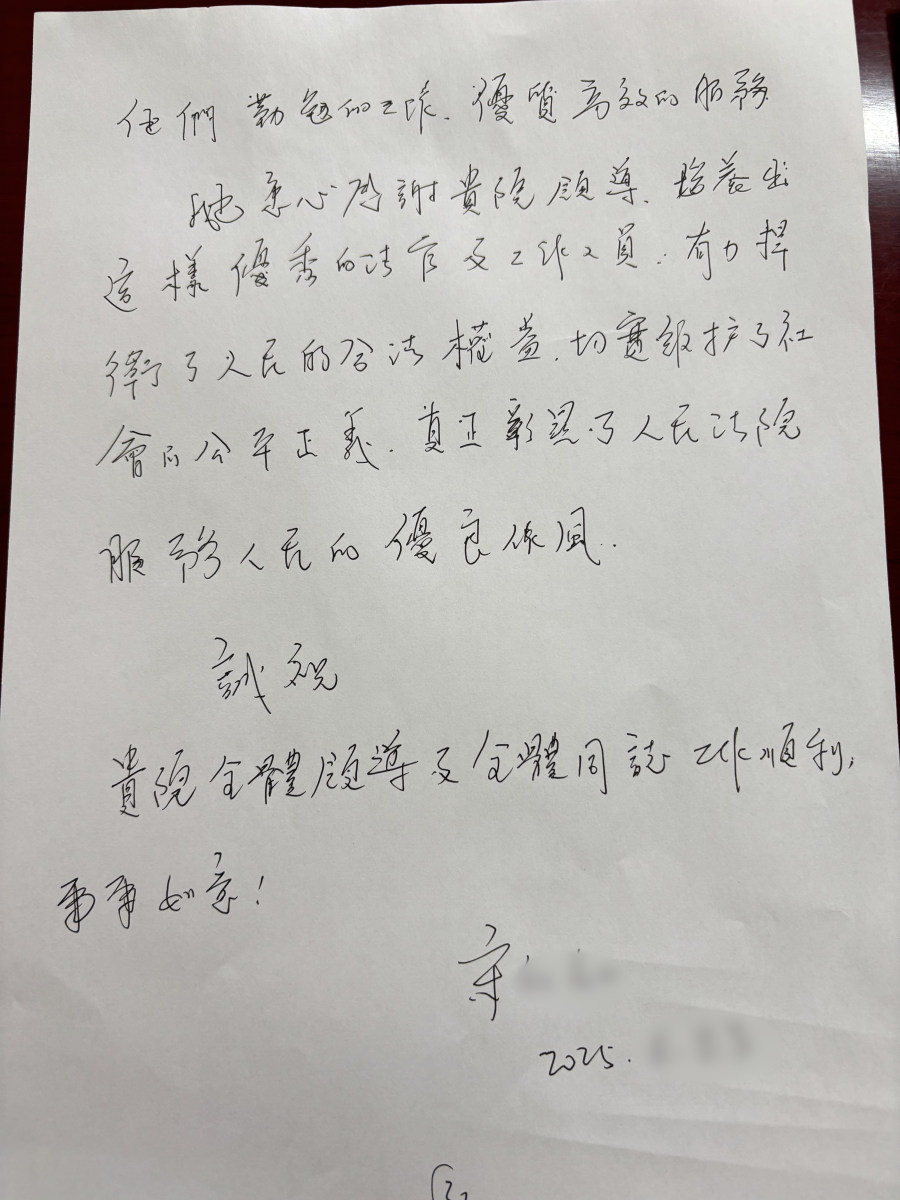 他們勤勉的工作、優質高效的服務
我也衷心感謝貴院領導、培養出
這樣優秀的法官及工作人員、有力捍
衛了人民的合法權益、切實維护了社
會的公平正義、真正彰显了人民法院
服務人民的優良作風.
誠祝
貴院全體領導及全體同誌工作順利，
事事如意！
宋
2025.